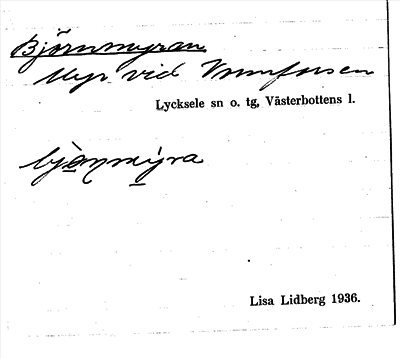 Björnmyran
Myr vid
Lycksele sn o. tg, Västerbottens l.
Lisa Lidberg 1936.